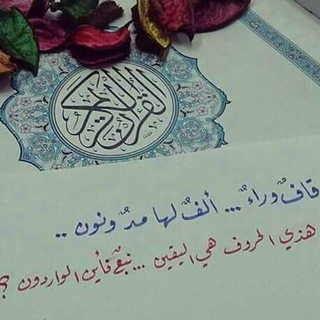 القرآن الكريم
قافٌ وراءٌ ... ألفٌ لها مدٌ ونون ..
هذي الحروف هي اليقين ... نبعٌ فأين الواردون ؟